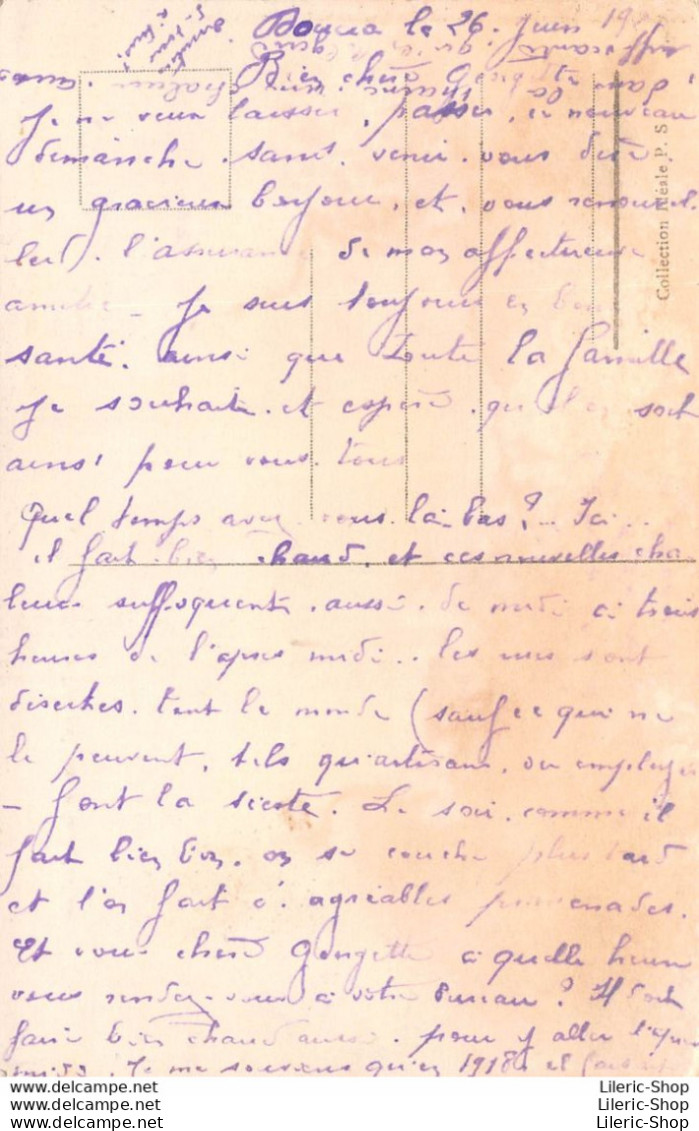 le 26 Juin 19
Bien chère
Je ne veux laisser passer ce nouveau
dimanche sans venir vous dire
un gracieux bonjour et vous renouvel
ler l'assurance de mon affectueuse
amitié - Je suis toujours en bonne
santé ainsi que toute la famille
Je souhaite et espère qu'il en soit
ainsi pour vous tous
Quel temps avez vous là bas? Ici
il fait bien chaud, et ces nouvelles cha
leurs suffoquent aussi de midi à trois
heures de l'après midi.. les rues sont
désertes. tout le monde (sauf ce qui ne
le peuvent, tels qu'artisans, ou employés
- font la sieste. Le soir comme il
fait bien bon, on se couche plus tard
et l'on fait d'agréables promenades.
Et vous chère Georgette à quelle heure
vous rendez-vous à votre bureau? Il doit
faire bien chaud aussi pour y aller l'après
midi. Je me souviens qu'en 1918 il fais
Collection Idéale P. S
Lileric-Shop
Lileric-Shop
Lileric-Shop